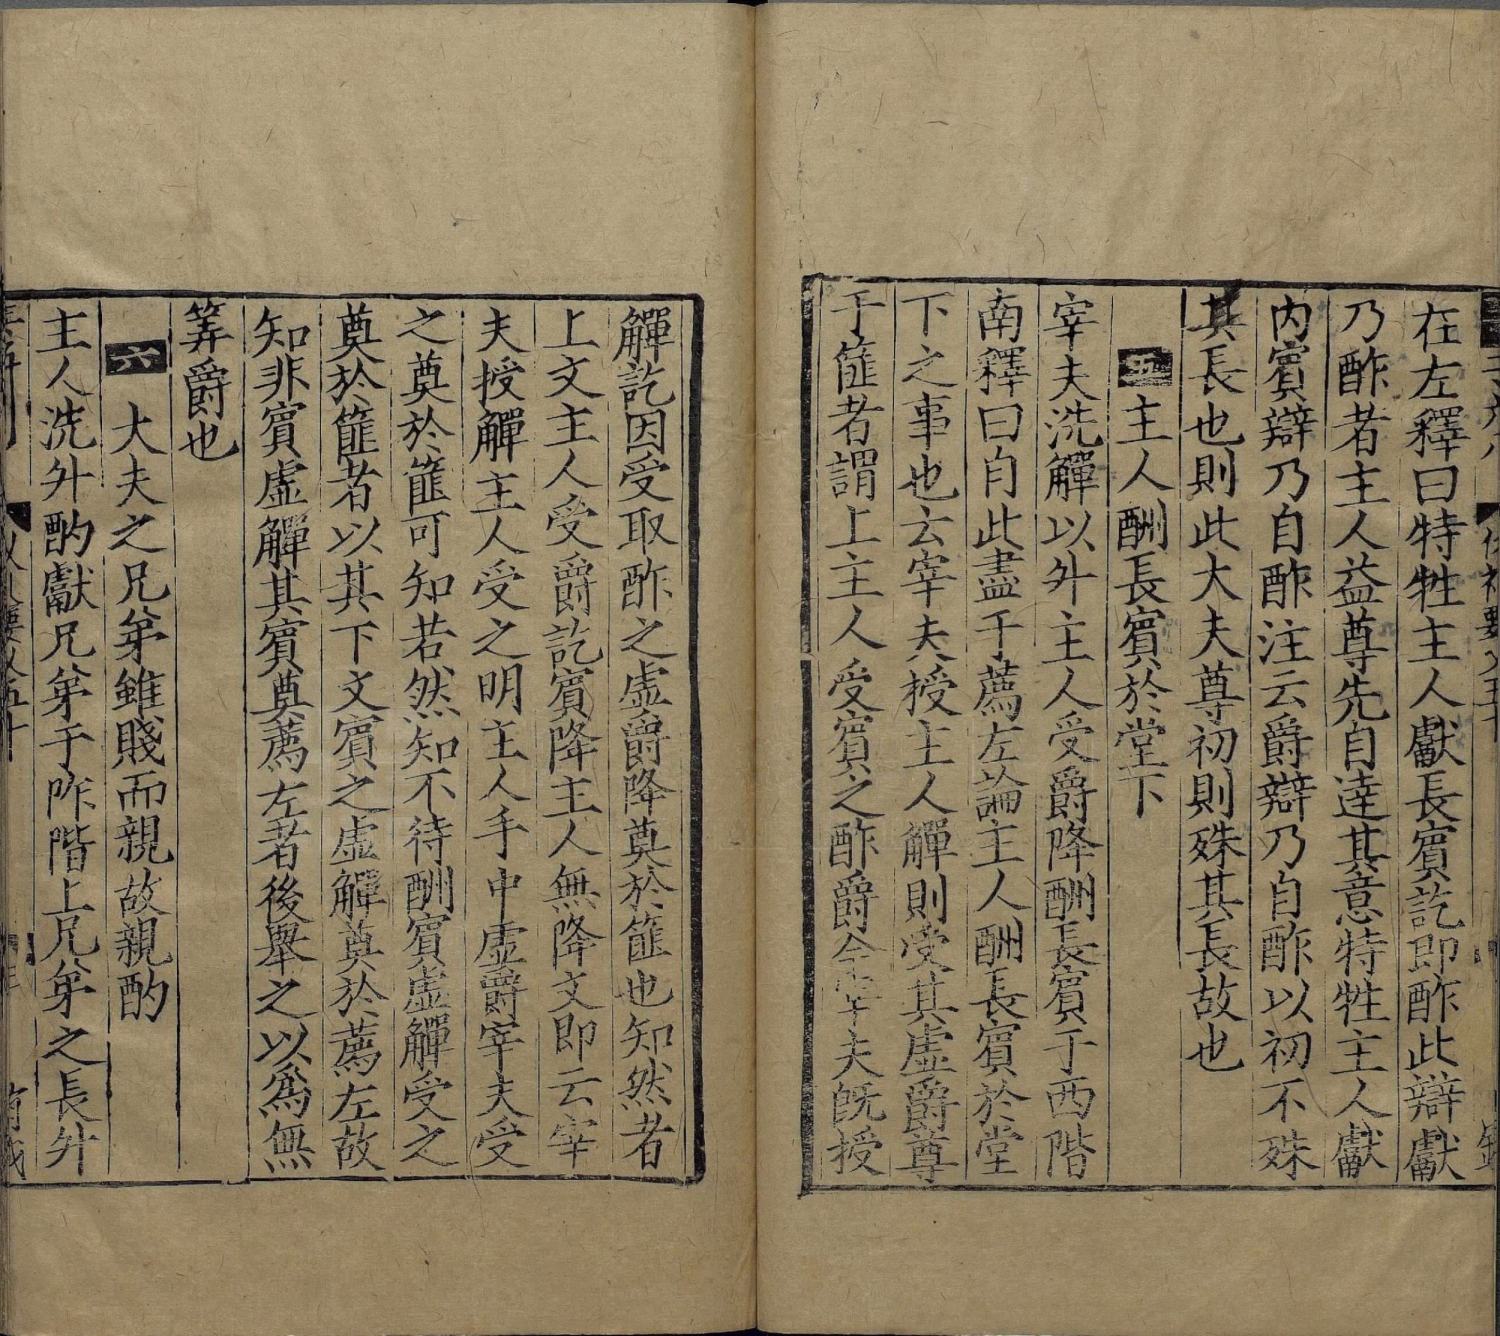 在左釋曰特牲主人獻長賓訖即酢此辯獻
乃酢者主人益尊先自達其意特牲主人獻
內賓辯乃自酢注云爵辯乃自酢以初不殊
其長也則此大夫尊初則殊其長故也
五 主人酬長賓於堂下
宰夫洗觶以升主人受爵降酬長賓于西階
南釋曰自此盡于薦左論主人酬長賓於堂
下之事也云宰夫授主人觶則受其虛爵尊
于篚者謂上主人受賓之酢爵今宰夫旣授
觶訖因受取酢之虛爵降奠於篚也知然者
上文主人受爵訖賓降主人無降文即云宰
夫授觶主人受之明主人手中虛爵宰夫受
之奠於篚可知若然知不待酬賓虛觶受之
奠於篚者以其下文賓之虛觶奠於薦左故
知非賓虛觶其賓奠薦左者後舉之以爲無
筭爵也
六 大夫之兄弟雖賤而親故親酌
主人洗升酌獻兄弟于阼階上兄弟之長升